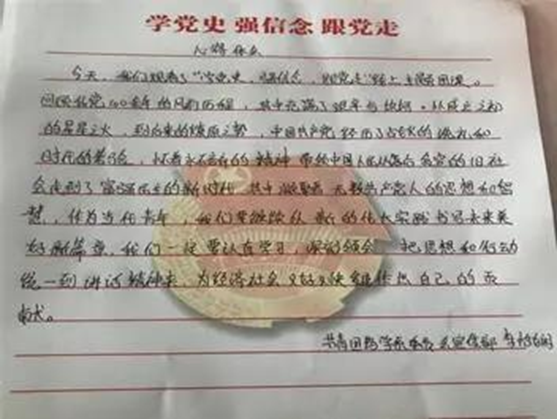 学党史 强信念 跟党走
心得体会
今天,我们观看了"学党史、强信念、跟党走"线上主题团课。
回顾我党100余年的风雨历程,其中充满了艰辛与坎坷。从成立之初
的星星之火,到后来的燎原之势,中国共产党经历了战火的洗礼和
时代的考验,怀着永不言弃的精神带领中国人民从落后贫穷的旧社
会走到了富强民主的新时代,其中凝聚着无数共产党人的思想和智
慧,作为当代青年,我们要继续在新的伟大实践书写未来美
好新篇章。我们一定要认真学习,深刻领会,把思想和行动
统一到讲话精神来,为经济社会又好又快发展作出自己的贡
献。
共青团 学院委员会宣传部